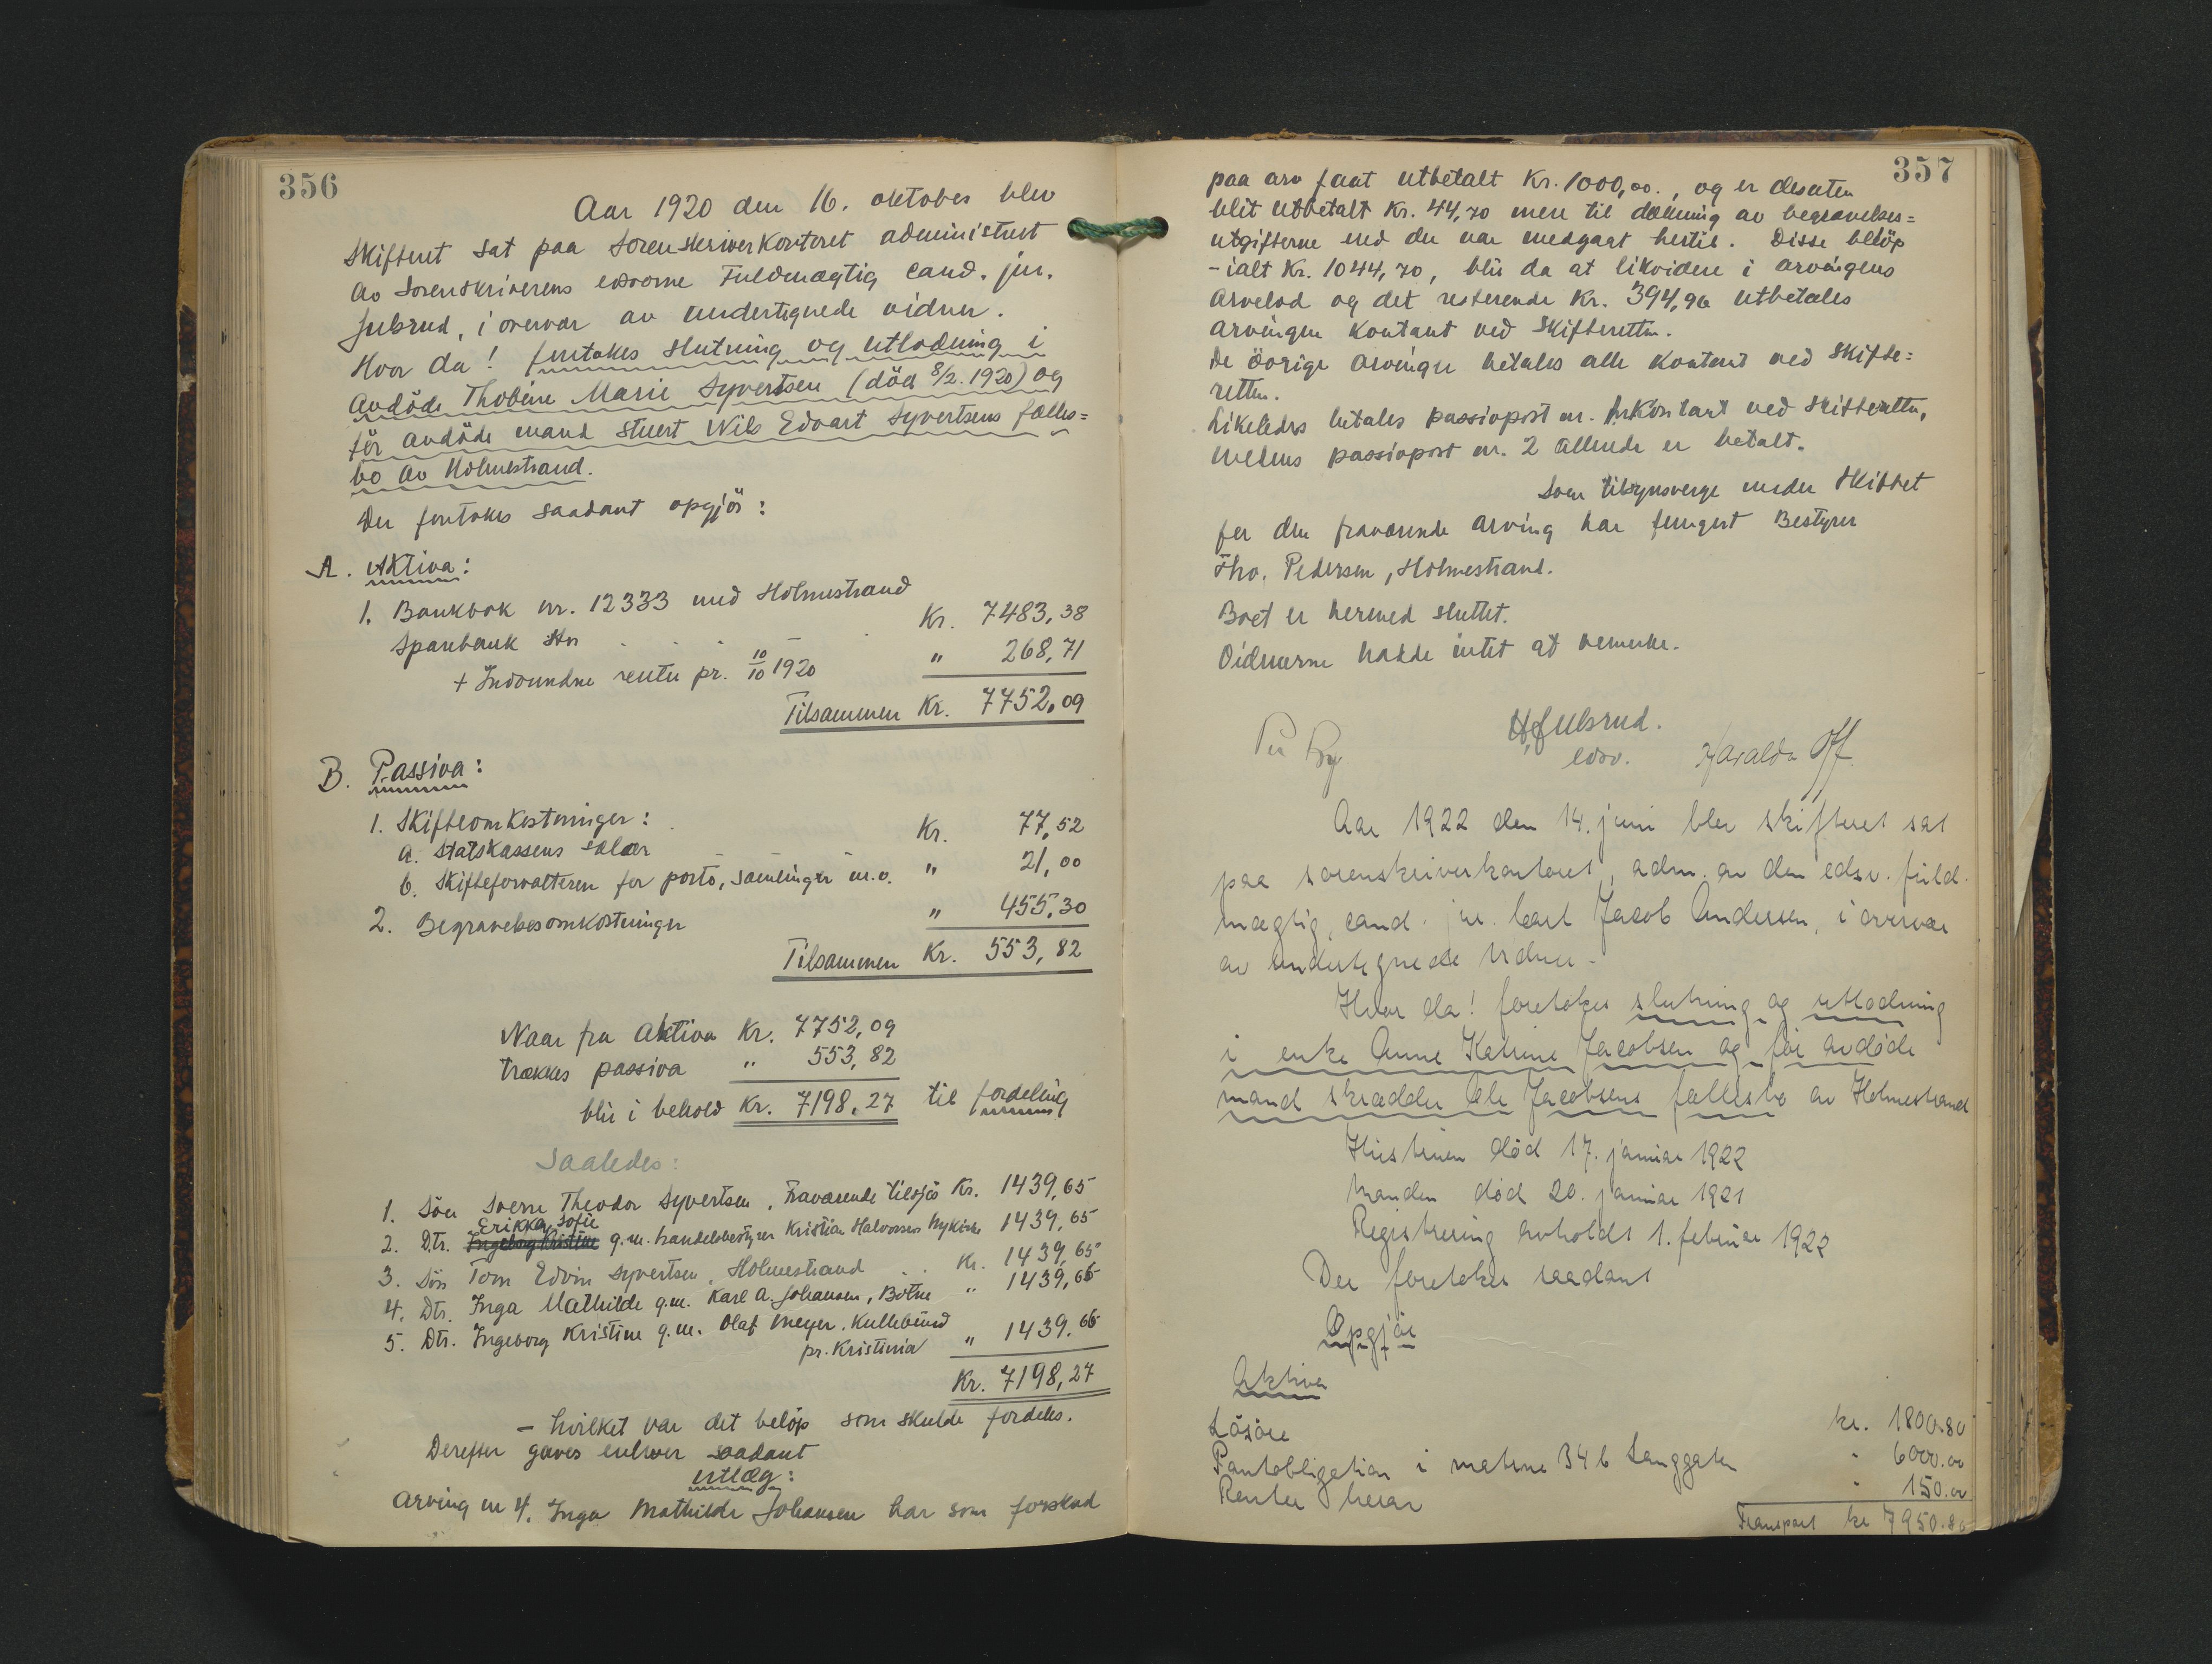 356
Aar 1920 den 16. oktober blev
skifteret sat paa sorenskriverkontoret administrert
av sorenskriverens edsvorne fuldmægtig cand. jur.
Julsrud, i overvær av undertegnede vidner.
Hvor da! foretokes slutning og utlodning i
avdöde Thobine Marie Syvertsen (död 8/2. 1920) og
för avdöde mand stuert Nils Edvart Syvertsens fælles=
bo av Holmestrand.
Der foretokes saadant opgjör:
A. Aktiva:
1. Bankbok nr. 12333 med Holmestrand
Sparebank stor . . . . Kr. 7483,38
+ Indvundne renter pr. 10/10 1920 " 268,71
Tilsammen Kr. 7752,09
B. Passiva:
1. Skifteomkostninger:
a. Statskassens salær Kr. 77,52
b. Skifteforvalteren for porto, samlinger m.v. " 21,00
2. Begravelsesomkostninger " 455,30
Tilsammen Kr. 553,82
Naar fra aktiva Kr. 7752,09
trækkes passiva " 553,82
blir i behold Kr. 7198,27 til fordeling
Saaledes:
1. Sön Sverre Theodor Syvertsen, fraværende tilsjös Kr. 1439,65
Erikka Sofie
2. Dtr. Ingeborg Kristine g.m. handelsbestyrer Kristian Halvorsen Nykirke 1439,65
3. Sön Tom Edvin Syvertsen, Holmestrand . . Kr. 1439,65
4. Dtr. Inga Mathilde g.m. Karl A. Johansen, Botne " 1439,66
5. Dtr. Ingeborg Kristine g.m. Olaf Meyer. Kullebund
pr. Kristinia " 1439.66
Kr. 7198,27
– hvilket var det belöp som skulde fordeles.
Derefter gaves enhver saadant
utlæg:
Arving nr 4. Inga Mathilde Johansen har som forskud
357
paa arv faat utbetalt Kr. 1000,00., og er desuten
blit utbetalt Kr. 44,70 mere til dækning av begravelses=
utgifterne end der var medgaat hertil. Disse belöp
– ialt Kr. 1044,70, blir da at likvidere i arvingens
arvelod og det resterende Kr. 394,96 utbetales
arvingen kontant ved skifteretten.
De övrige arvinger betales alle kontant ved skifte=
retten.
Likeledes betales passivpost nr. 1 kontant ved skifteretten,
medens passivpost nr. 2 allerede er betalt.
Som tilsynsverge under skiftet
for den fraværende arving har fungert Bestyrer
Tho. Pedersen, Holmestrand.
Boet er hermed sluttet.
Vidnerne hadde intet at bemerke.
Julsrud.
edsv.
Aar 1922 den 14. juni blev skifteret sat
paa sorenskriverkontoret, adm. av den edsv. fuld-
mægtig, cand. jur. Carl Jacob Andersen, i overvær
av undertegnede vidner.
Hvor da! foretokes slutning og utlodning
i enke Anne Katrine Jacobsen og för avdöde
mand skrædder Ole Jacobsens fællesbo av Holmestrand
Hustruen död 17. januar 1922
Manden död 20. januar 1921
Registrering avholdt 1. februar 1922
Der foretokes saadant
Opgjör
Aktiva
Lösöre kr. 1800.80
Pantobligation i matrnr 34 b Langgaten " 6000.00
Renter herav " 150.00
Transport kr 7950.80